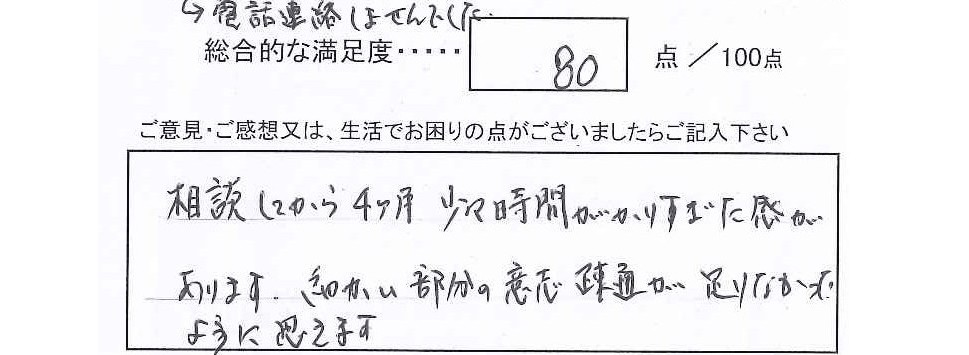 ↳電話連絡しませんでした
総合的な満足度・・・・・ 80 点／100点
ご意見・ご感想又は、生活でお困りの点がございましたらご記入下さい
相談してから4ヶ月 少々時間がかかりすぎた感が
あります. 細かい部分の意志疎通が足りなかった
ように思えます